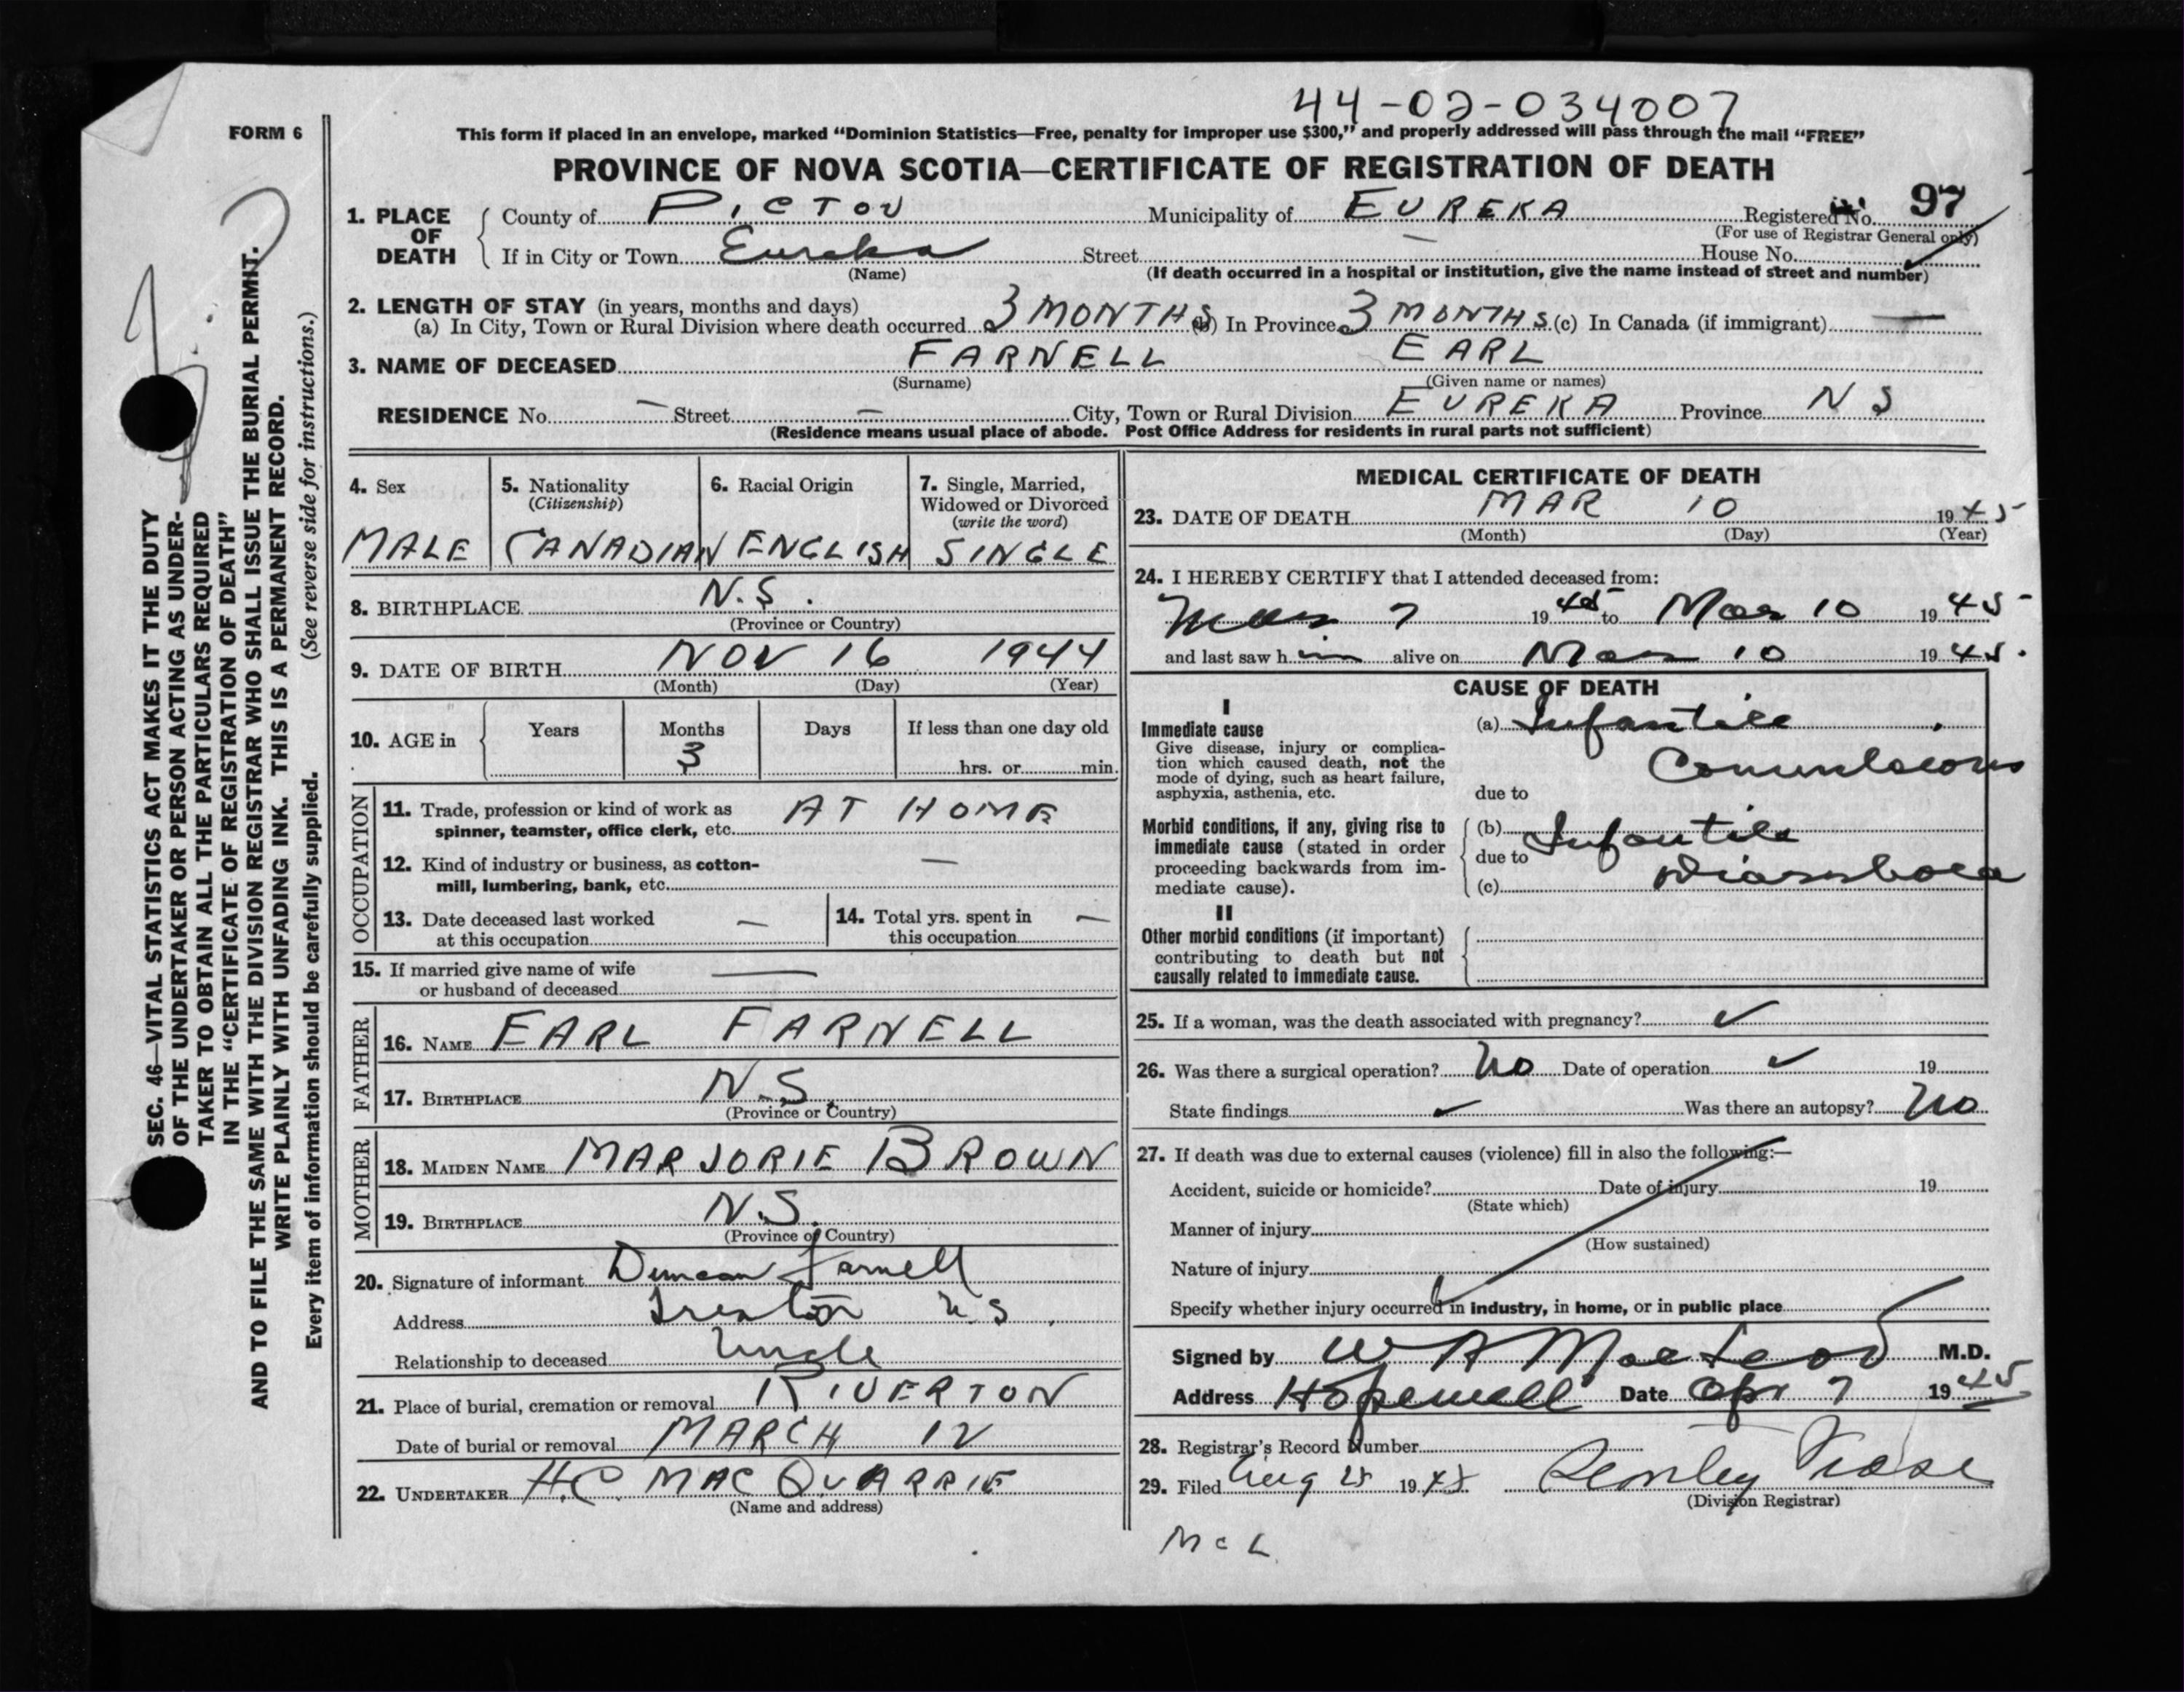 44-02-034007
FORM 6
This form if placed in an envelope, marked “Dominion Statistics—Free, penalty for improper use $300,” and properly addressed will pass through the mail “FREE”
PROVINCE OF NOVA SCOTIA—CERTIFICATE OF REGISTRATION OF DEATH
SEC. 46—VITAL STATISTICS ACT MAKES IT THE DUTY
OF THE UNDERTAKER OR PERSON ACTING AS UNDER-
TAKER TO OBTAIN ALL THE PARTICULARS REQUIRED
IN THE “CERTIFICATE OF REGISTRATION OF DEATH”
AND TO FILE THE SAME WITH THE DIVISION REGISTRAR WHO SHALL ISSUE THE BURIAL PERMIT.
WRITE PLAINLY WITH UNFADING INK. THIS IS A PERMANENT RECORD.
Every item of information should be carefully supplied. (See reverse side for instructions.)
1. PLACE OF DEATH
County of PICTOU Municipality of EUREKA Registered No. 97
(For use of Registrar General only)
If in City or Town Eureka Street — House No.
(Name) (If death occurred in a hospital or institution, give the name instead of street and number)
2. LENGTH OF STAY (in years, months and days)
(a) In City, Town or Rural Division where death occurred 3 MONTHS (b) In Province 3 MONTHS (c) In Canada (if immigrant) —
3. NAME OF DECEASED FARNELL EARL
(Surname) (Given name or names)
RESIDENCE No. — Street — City, Town or Rural Division EUREKA Province N S
(Residence means usual place of abode. Post Office Address for residents in rural parts not sufficient)
4. Sex
MALE
5. Nationality
(Citizenship)
CANADIAN
6. Racial Origin
ENGLISH
7. Single, Married,
Widowed or Divorced
(write the word)
SINGLE
8. BIRTHPLACE N.S.
(Province or Country)
9. DATE OF BIRTH NOV 16 1944
(Month) (Day) (Year)
10. AGE in Years Months Days If less than one day old
3 hrs. or min.
OCCUPATION
11. Trade, profession or kind of work as
spinner, teamster, office clerk, etc. AT HOME
12. Kind of industry or business, as cotton-
mill, lumbering, bank, etc. —
13. Date deceased last worked
at this occupation —
14. Total yrs. spent in
this occupation —
15. If married give name of wife
or husband of deceased —
FATHER
16. NAME EARL FARNELL
17. BIRTHPLACE N.S.
(Province or Country)
MOTHER
18. MAIDEN NAME MARJORIE BROWN
19. BIRTHPLACE N.S.
(Province or Country)
20. Signature of informant Duncan Farnell
Address Trenton N.S.
Relationship to deceased Uncle
21. Place of burial, cremation or removal RIVERTON
Date of burial or removal MARCH 12
22. UNDERTAKER H.C. MACQUARRIE
(Name and address)
MEDICAL CERTIFICATE OF DEATH
23. DATE OF DEATH MAR 10 1945
(Month) (Day) (Year)
24. I HEREBY CERTIFY that I attended deceased from:
Mar 7 1945 to Mar 10 1945
and last saw him alive on Mar 10 1945.
CAUSE OF DEATH
I
Immediate cause
Give disease, injury or complica-
tion which caused death, not the
mode of dying, such as heart failure,
asphyxia, asthenia, etc.
(a) Infantile
Convulsions
due to
Morbid conditions, if any, giving rise to
immediate cause (stated in order
proceeding backwards from im-
mediate cause).
(b) Infantile
due to
(c) Diarrhoea
II
Other morbid conditions (if important)
contributing to death but not
causally related to immediate cause.
25. If a woman, was the death associated with pregnancy? ✓
26. Was there a surgical operation? No Date of operation ✓ 19
State findings ✓ Was there an autopsy? No
27. If death was due to external causes (violence) fill in also the following:—
Accident, suicide or homicide? Date of injury 19
(State which)
Manner of injury
(How sustained)
Nature of injury
Specify whether injury occurred in industry, in home, or in public place
Signed by W A MacLeod M.D.
Address Hopewell Date Apr 7 1945
28. Registrar's Record Number
29. Filed Aug 1945
(Division Registrar)
McL